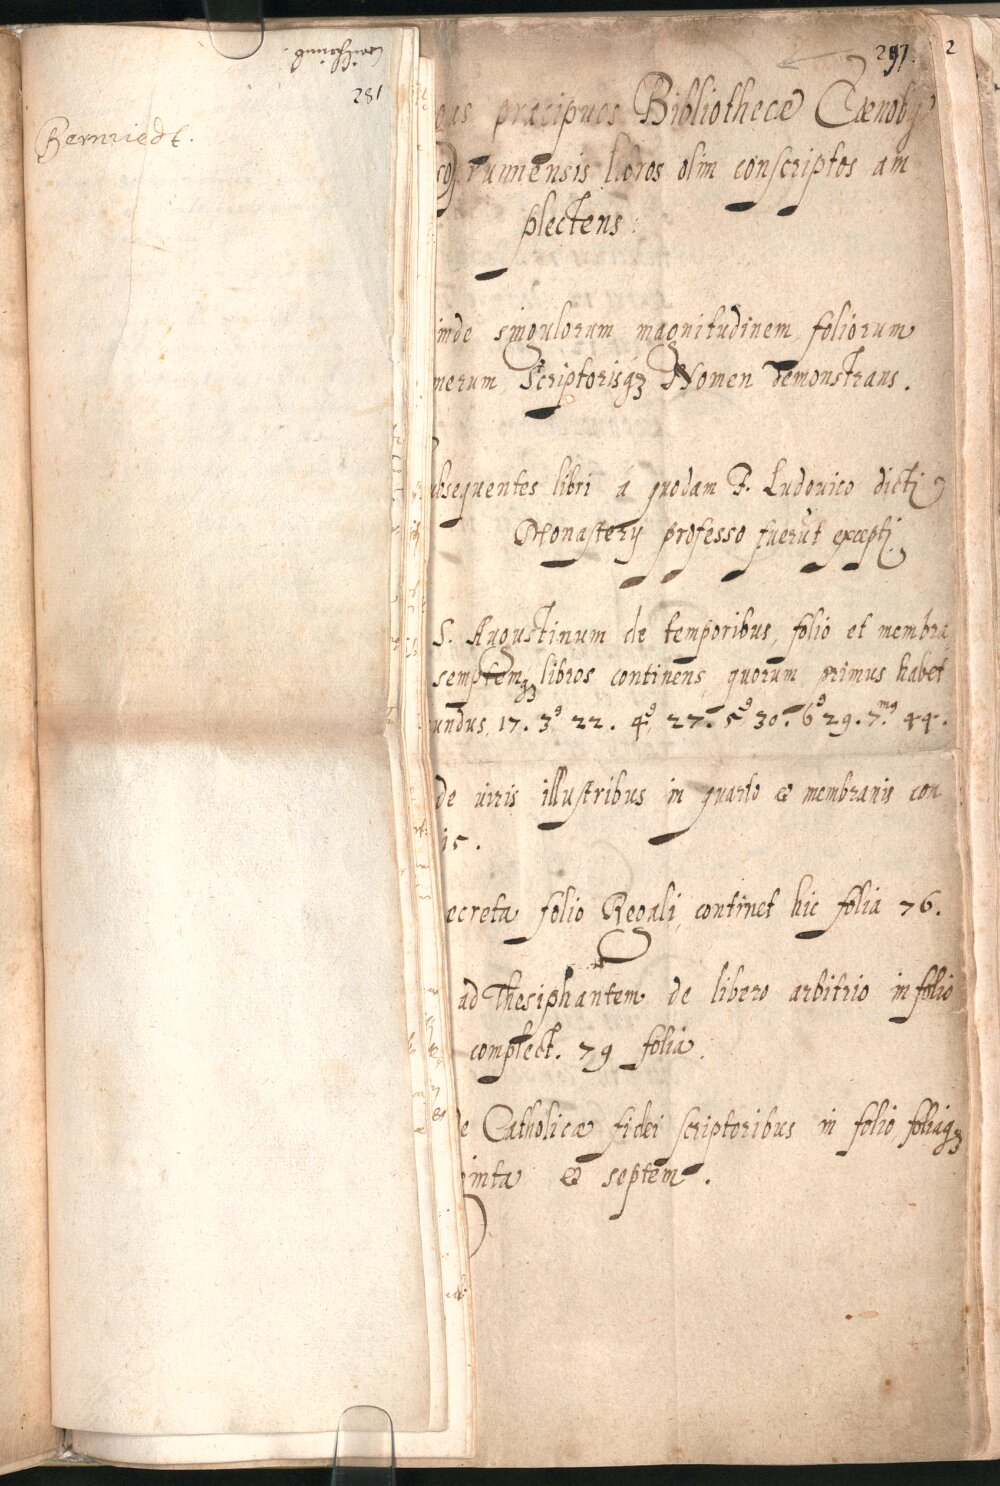 281
Bernriedt.
297. 2
præcipuos Bibliothecæ Cænobij
libros olim conscriptos am
plectens.
inde singulorum magnitudinem, foliorum
merum Scriptorisqꝫ Nomen demonstrans.
ubsequentes libri á quodam F. Ludouico dicti
Monasterij professo fuerūt excepti.
S. Augustinum de temporibus, folio et membra
septem libros continens, quorum primus habet
undus, 17. 3⁹ 22. 4⁹ 27. 5⁹ 30. 6⁹ 29. 7.ᵐ⁹ 44.
de uiris illustribus in quarto & membranis con
15.
ecreta folio Regali, continet hic folia 76.
ad Thesiphantem de libero arbitrio in folio
complect. 79 folia.
e Catholicæ fidei scriptoribus in folio foliaqꝫ
inta & septem.